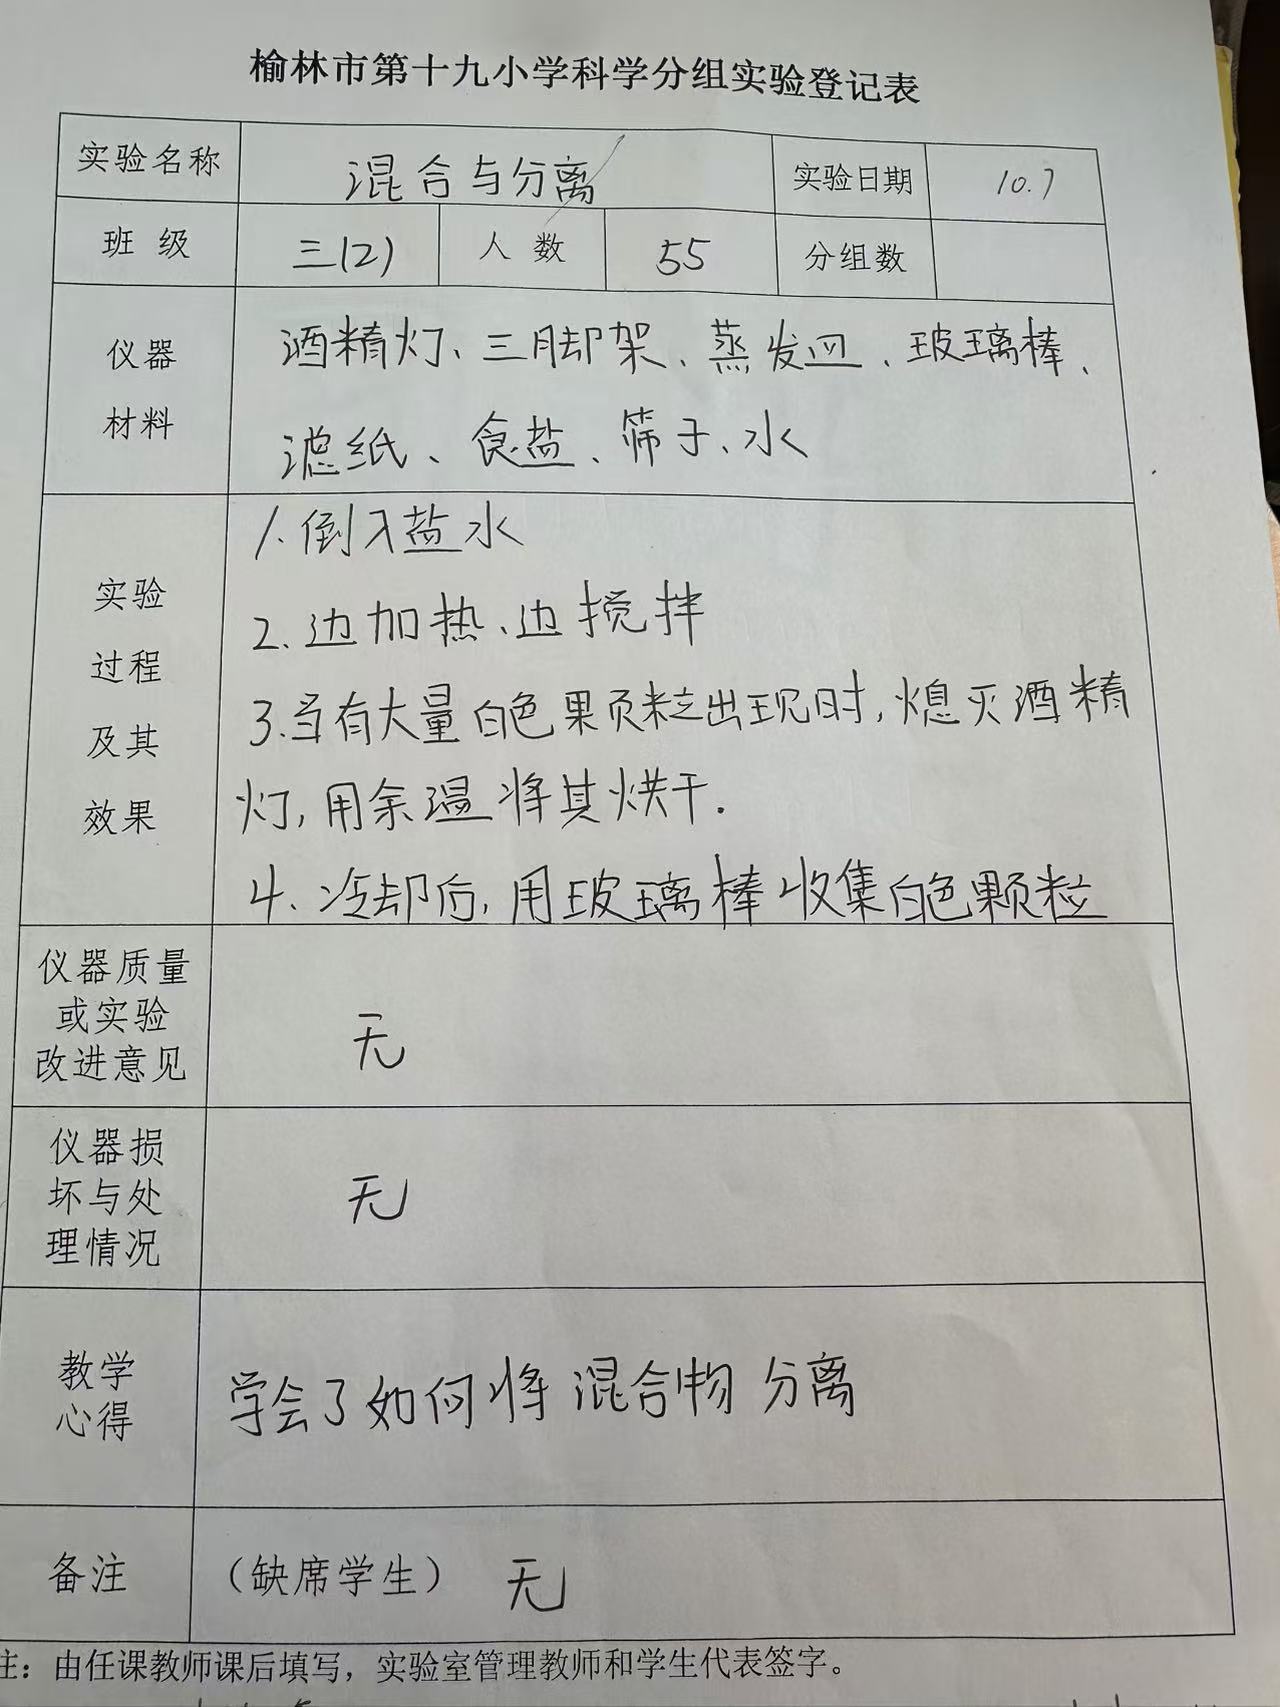 榆林市第十九小学科学分组实验登记表
实验名称 混合与分离 实验日期 10.7
班 级 三(2) 人 数 55 分组数
仪器
材料
酒精灯、三脚架、蒸发皿、玻璃棒、
滤纸、食盐、筛子、水
实验
过程
及其
效果
1.倒入盐水
2.边加热、边搅拌
3.当有大量白色果页粒出现时,熄灭酒精
灯,用余温将其烘干.
4.冷却后,用玻璃棒收集白色颗粒
仪器质量
或实验
改进意见
无
仪器损
坏与处
理情况
无
教学
心得
学会了如何将混合物分离
备注 (缺席学生) 无
注：由任课教师课后填写，实验室管理教师和学生代表签字。